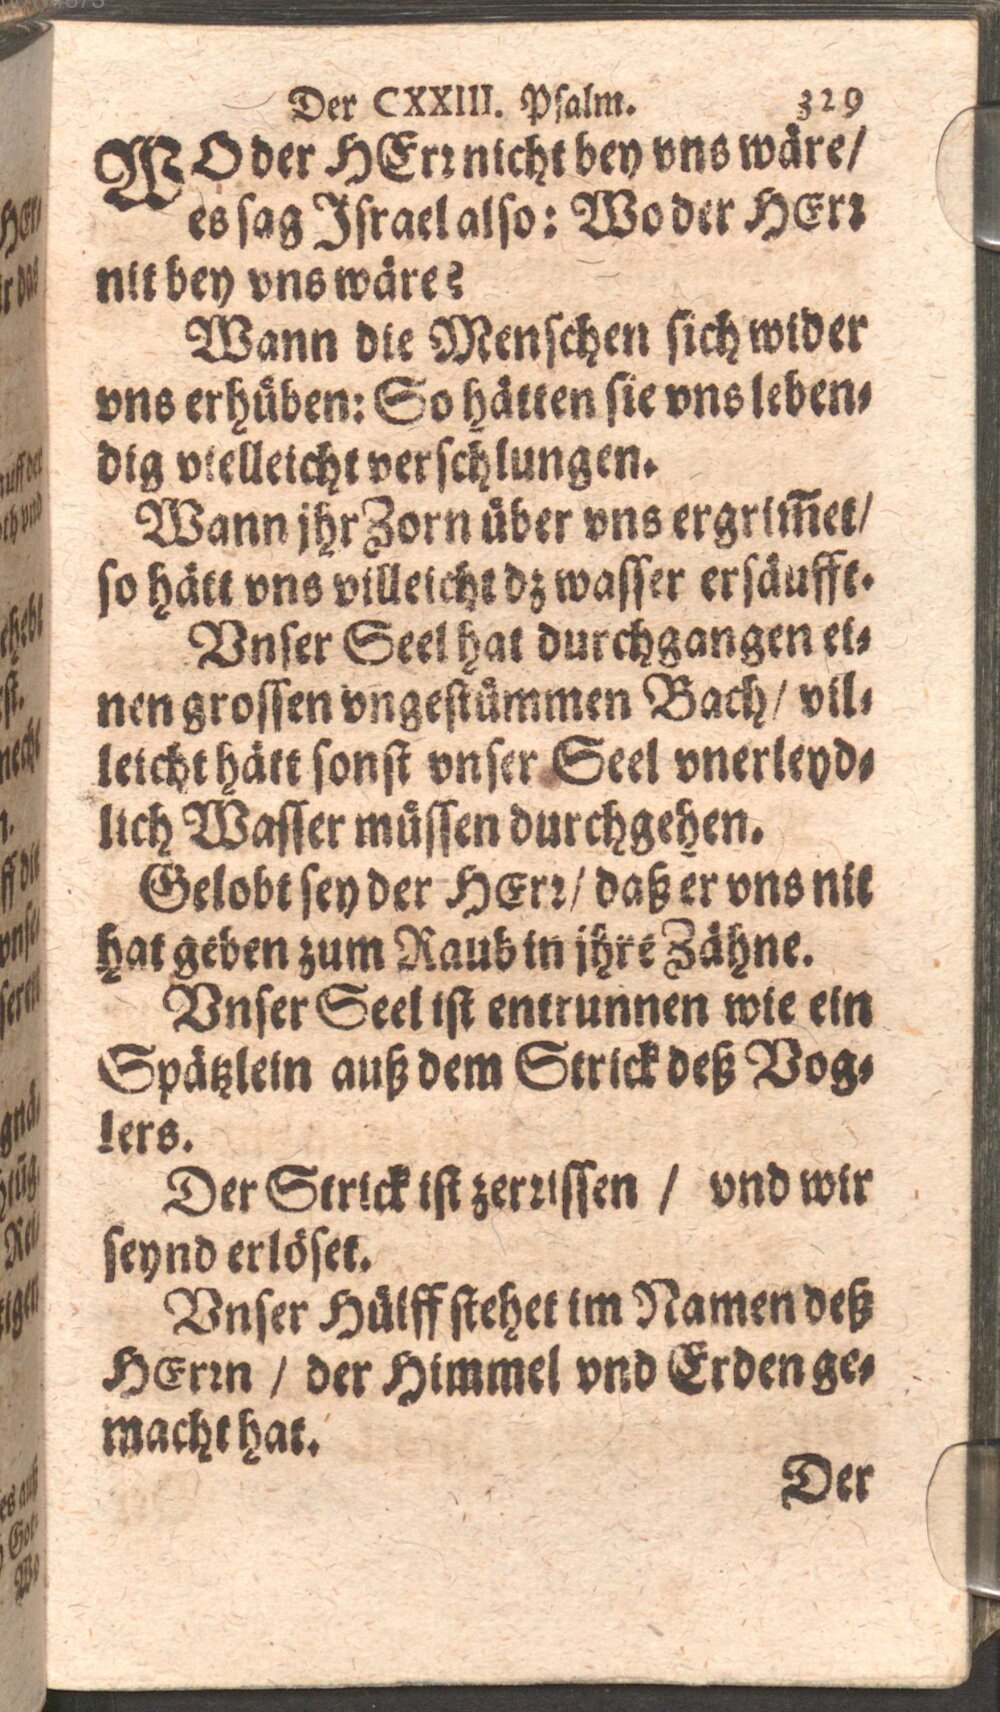 Der CXXIII. Psalm. 329
WO der HErꝛ nicht bey vns wäre/
es sag Israel also: Wo der HErꝛ
nit bey vns wäre?
Wann die Menschen sich wider
vns erhüben: So hätten sie vns leben⸗
dig vielleicht verschlungen.
Wann jhr Zorn über vns ergrim̅et/
so hätt vns villeicht dz wasser ersäufft.
Vnser Seel hat durchgangen ei⸗
nen grossen vngestümmen Bach/ vil⸗
leicht hätt sonst vnser Seel vnerleyd⸗
lich Wasser müssen durchgehen.
Gelobt sey der HErꝛ/ daß er vns nit
hat geben zum Raub in jhre Zähne.
Vnser Seel ist entrunnen wie ein
Spätzlein auß dem Strick deß Vog⸗
lers.
Der Strick ist zerꝛissen / vnd wir
seynd erlöset.
Vnser Hülff stehet im Namen deß
HErꝛn / der Himmel vnd Erden ge⸗
macht hat.
Der